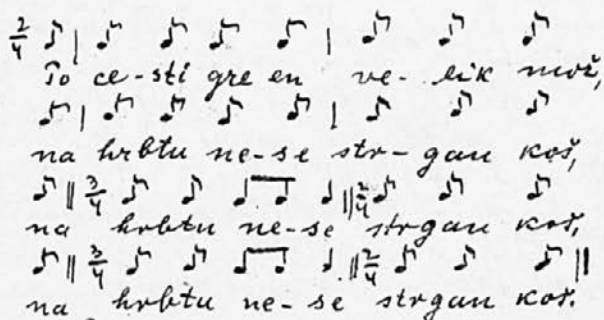 2/4
To ce-sti gre en ve-lik mož,
na hrbtu ne-se str-gan koš,
3/4 2/4
na hrbtu ne-se strgan koš,
3/4 2/4
na hrbtu ne-se strgan koš.